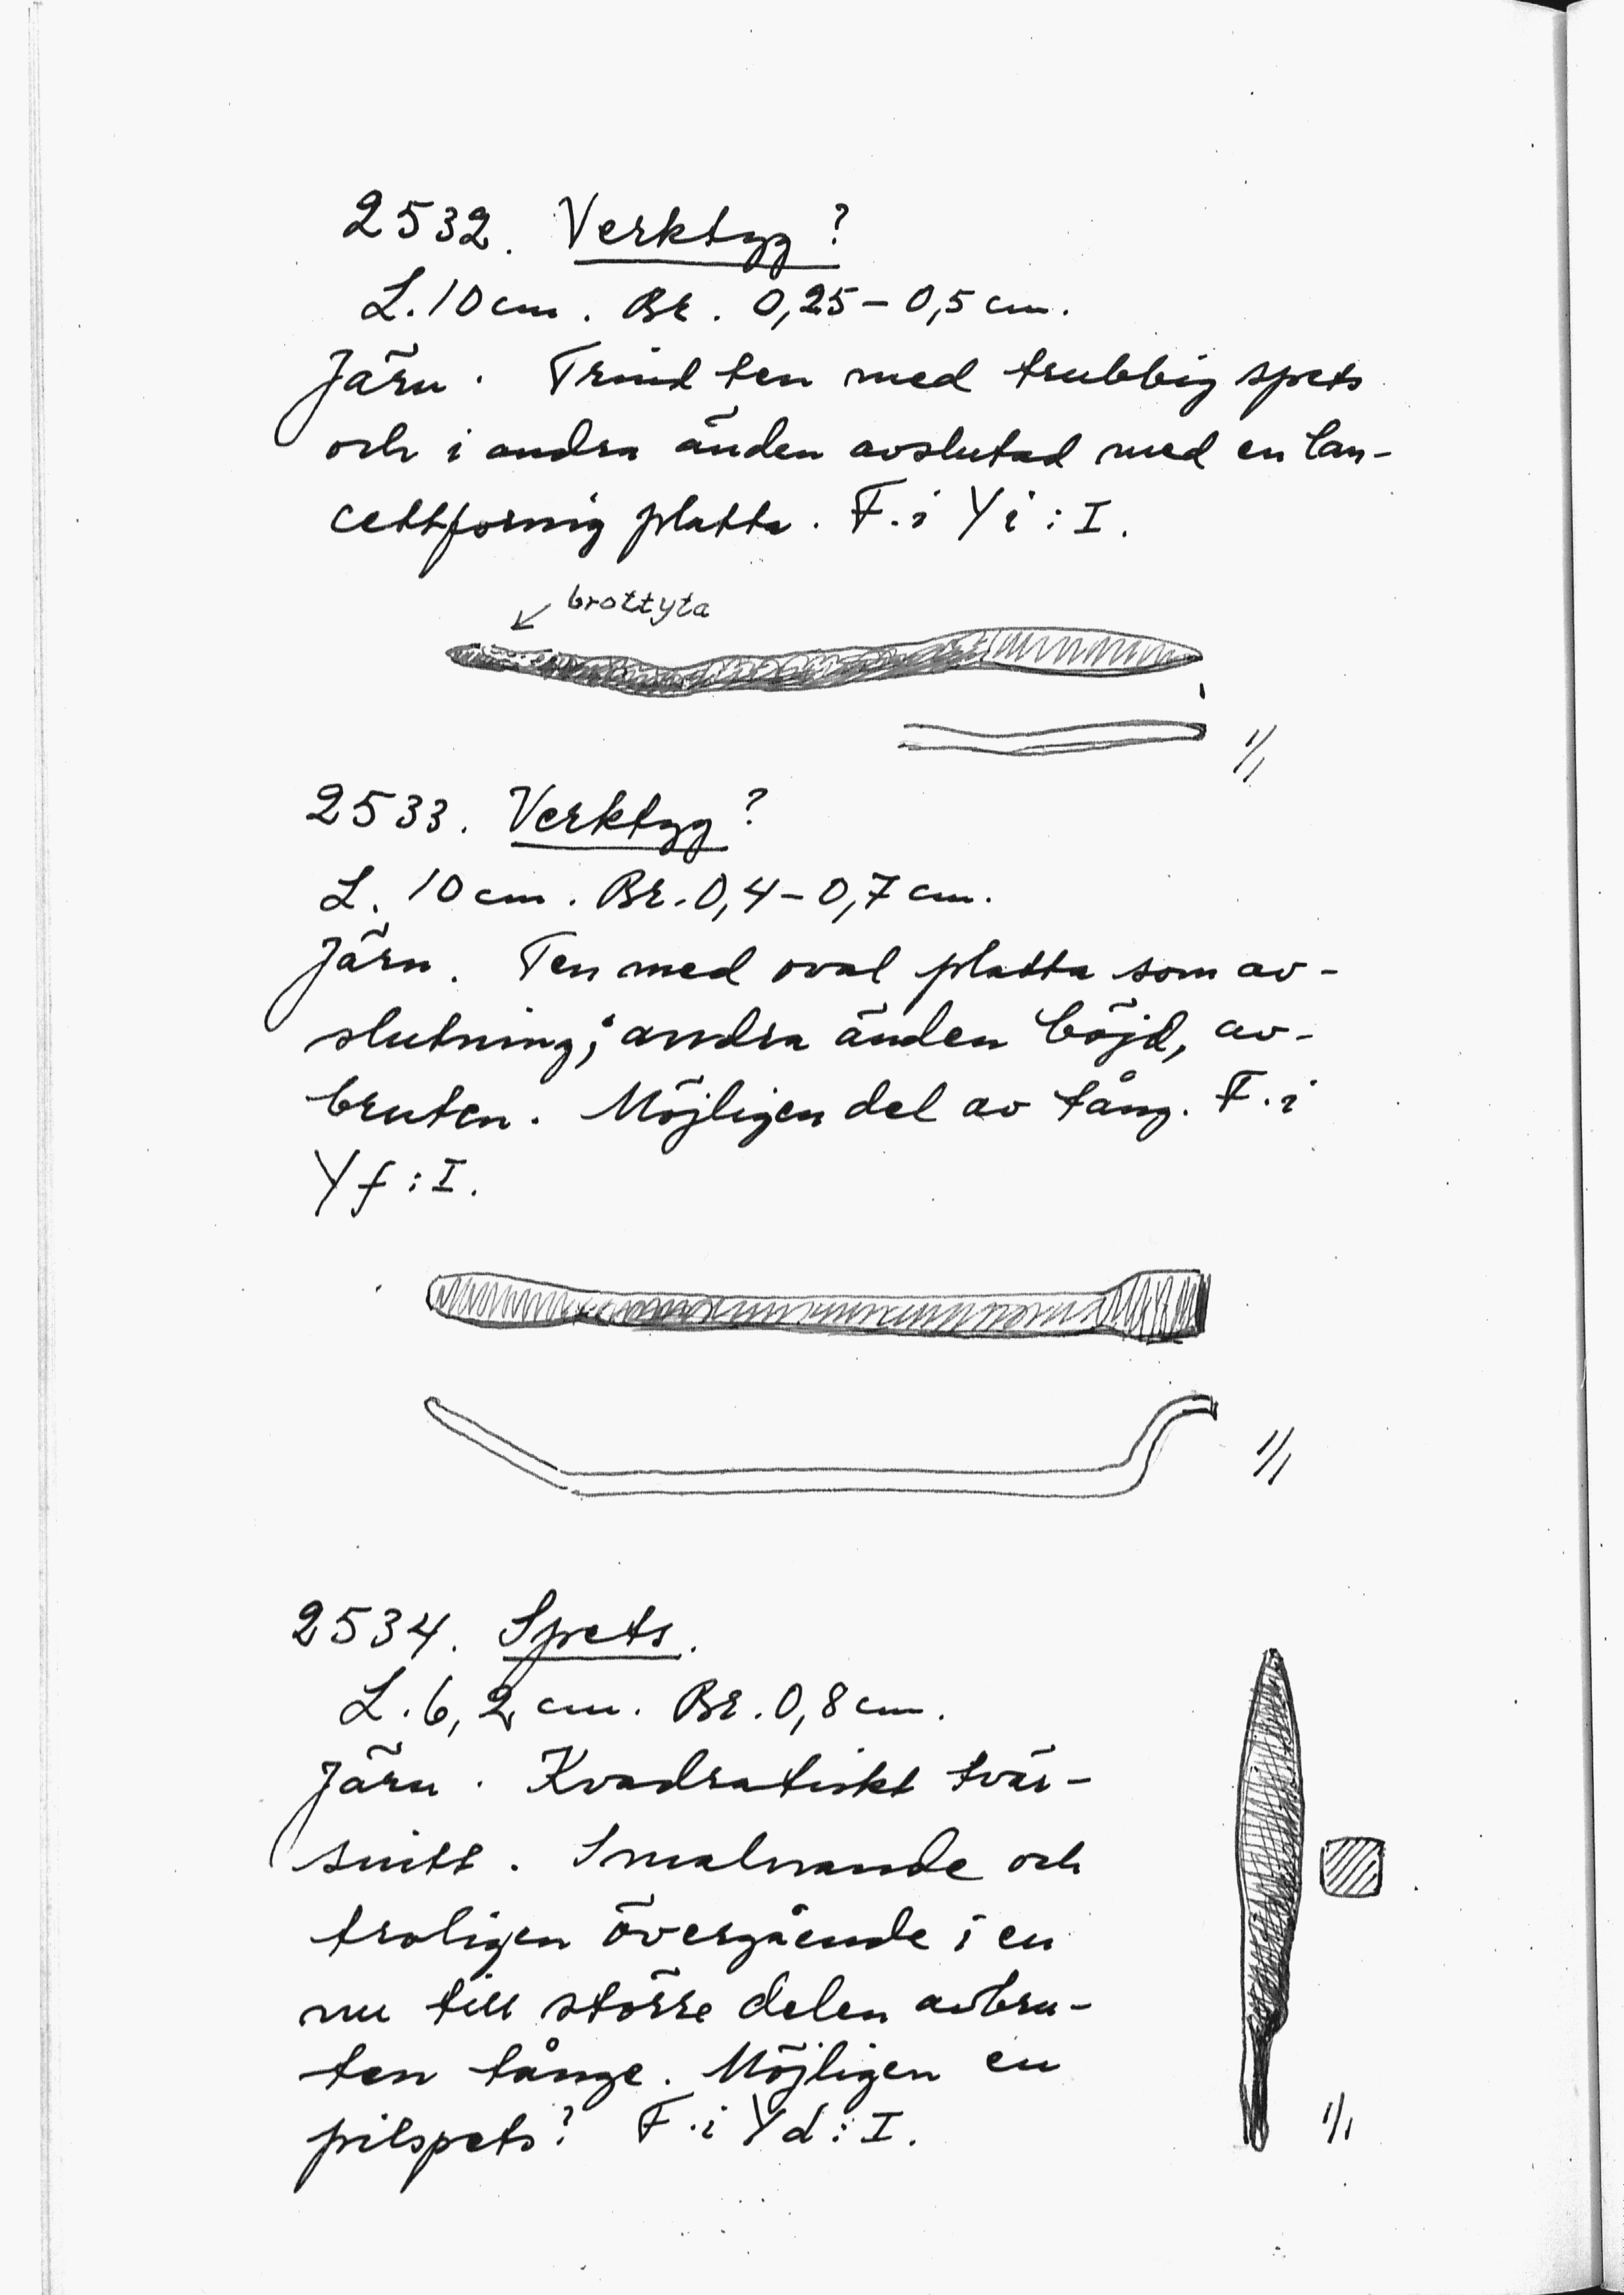 2532. Verktyg?
L. 10 cm. Br. 0,25 – 0,5 cm.
Järn. Trind ten med trubbig spets
och i andra änden avslutad med en lan-
cettformig platta. F. i Yi : I.
brottyta
1/1
2533. Verktyg?
L. 10 cm. Br. 0,4 – 0,7 cm.
Järn. Ten med oval platta som av-
slutning; andra änden böjd, av-
bruten. Möjligen del av tång. F. i
Yf : I.
1/1
2534. Spets.
L. 6,2 cm. Br. 0,8 cm.
Järn. Kvadratiskt tvär-
snitt. Smalnande och
troligen övergående i en
nu till större delen avbru-
ten tånge. Möjligen en
pilspets? F. i Yd : I.
1/1